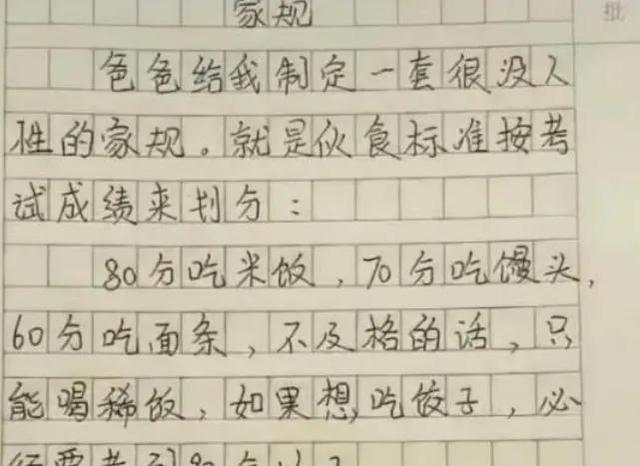 家规
批
爸爸给我制定一套很没人
性的家规。就是伙食标准按考
试成绩来划分：
80分吃米饭，70分吃馒头，
60分吃面条，不及格的话，只
能喝稀饭，如果想,吃饺子，必
须要考到90分以上